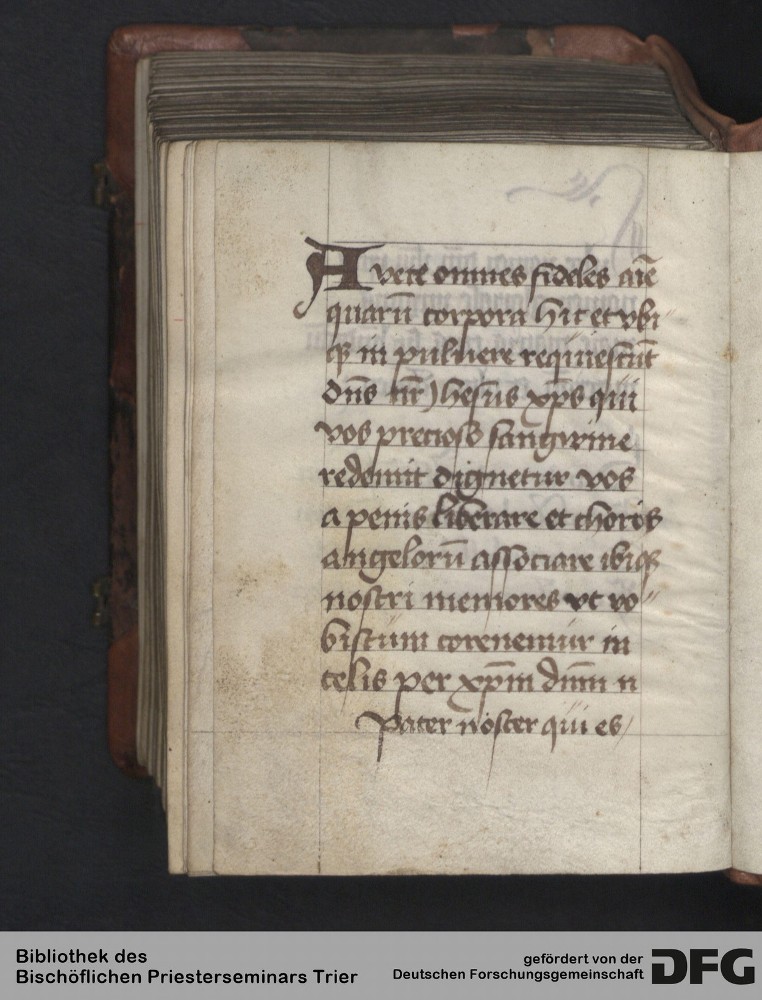 Avete omnes fideles aīe
quarū corpora hic et vbi
qꝫ in puluere requiescūt
dn̄s nr̄ Jhesus xp̄s qui
vos precioso sangwine
redemit dignetur vos
a penis liberare et choris
angelorū associare ibiqꝫ
nostri memores vt vo
biscum coronemur in
celis per xp̄m dnm̄ n
Pater noster qui es
Bibliothek des
Bischöflichen Priesterseminars Trier
gefördert von der
Deutschen Forschungsgemeinschaft
DFG